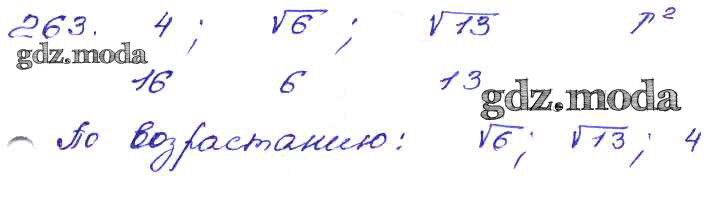 263. 4; √6; √13 r²
gdz.moda
16 6 13
gdz.moda
По возрастанию: √6; √13; 4